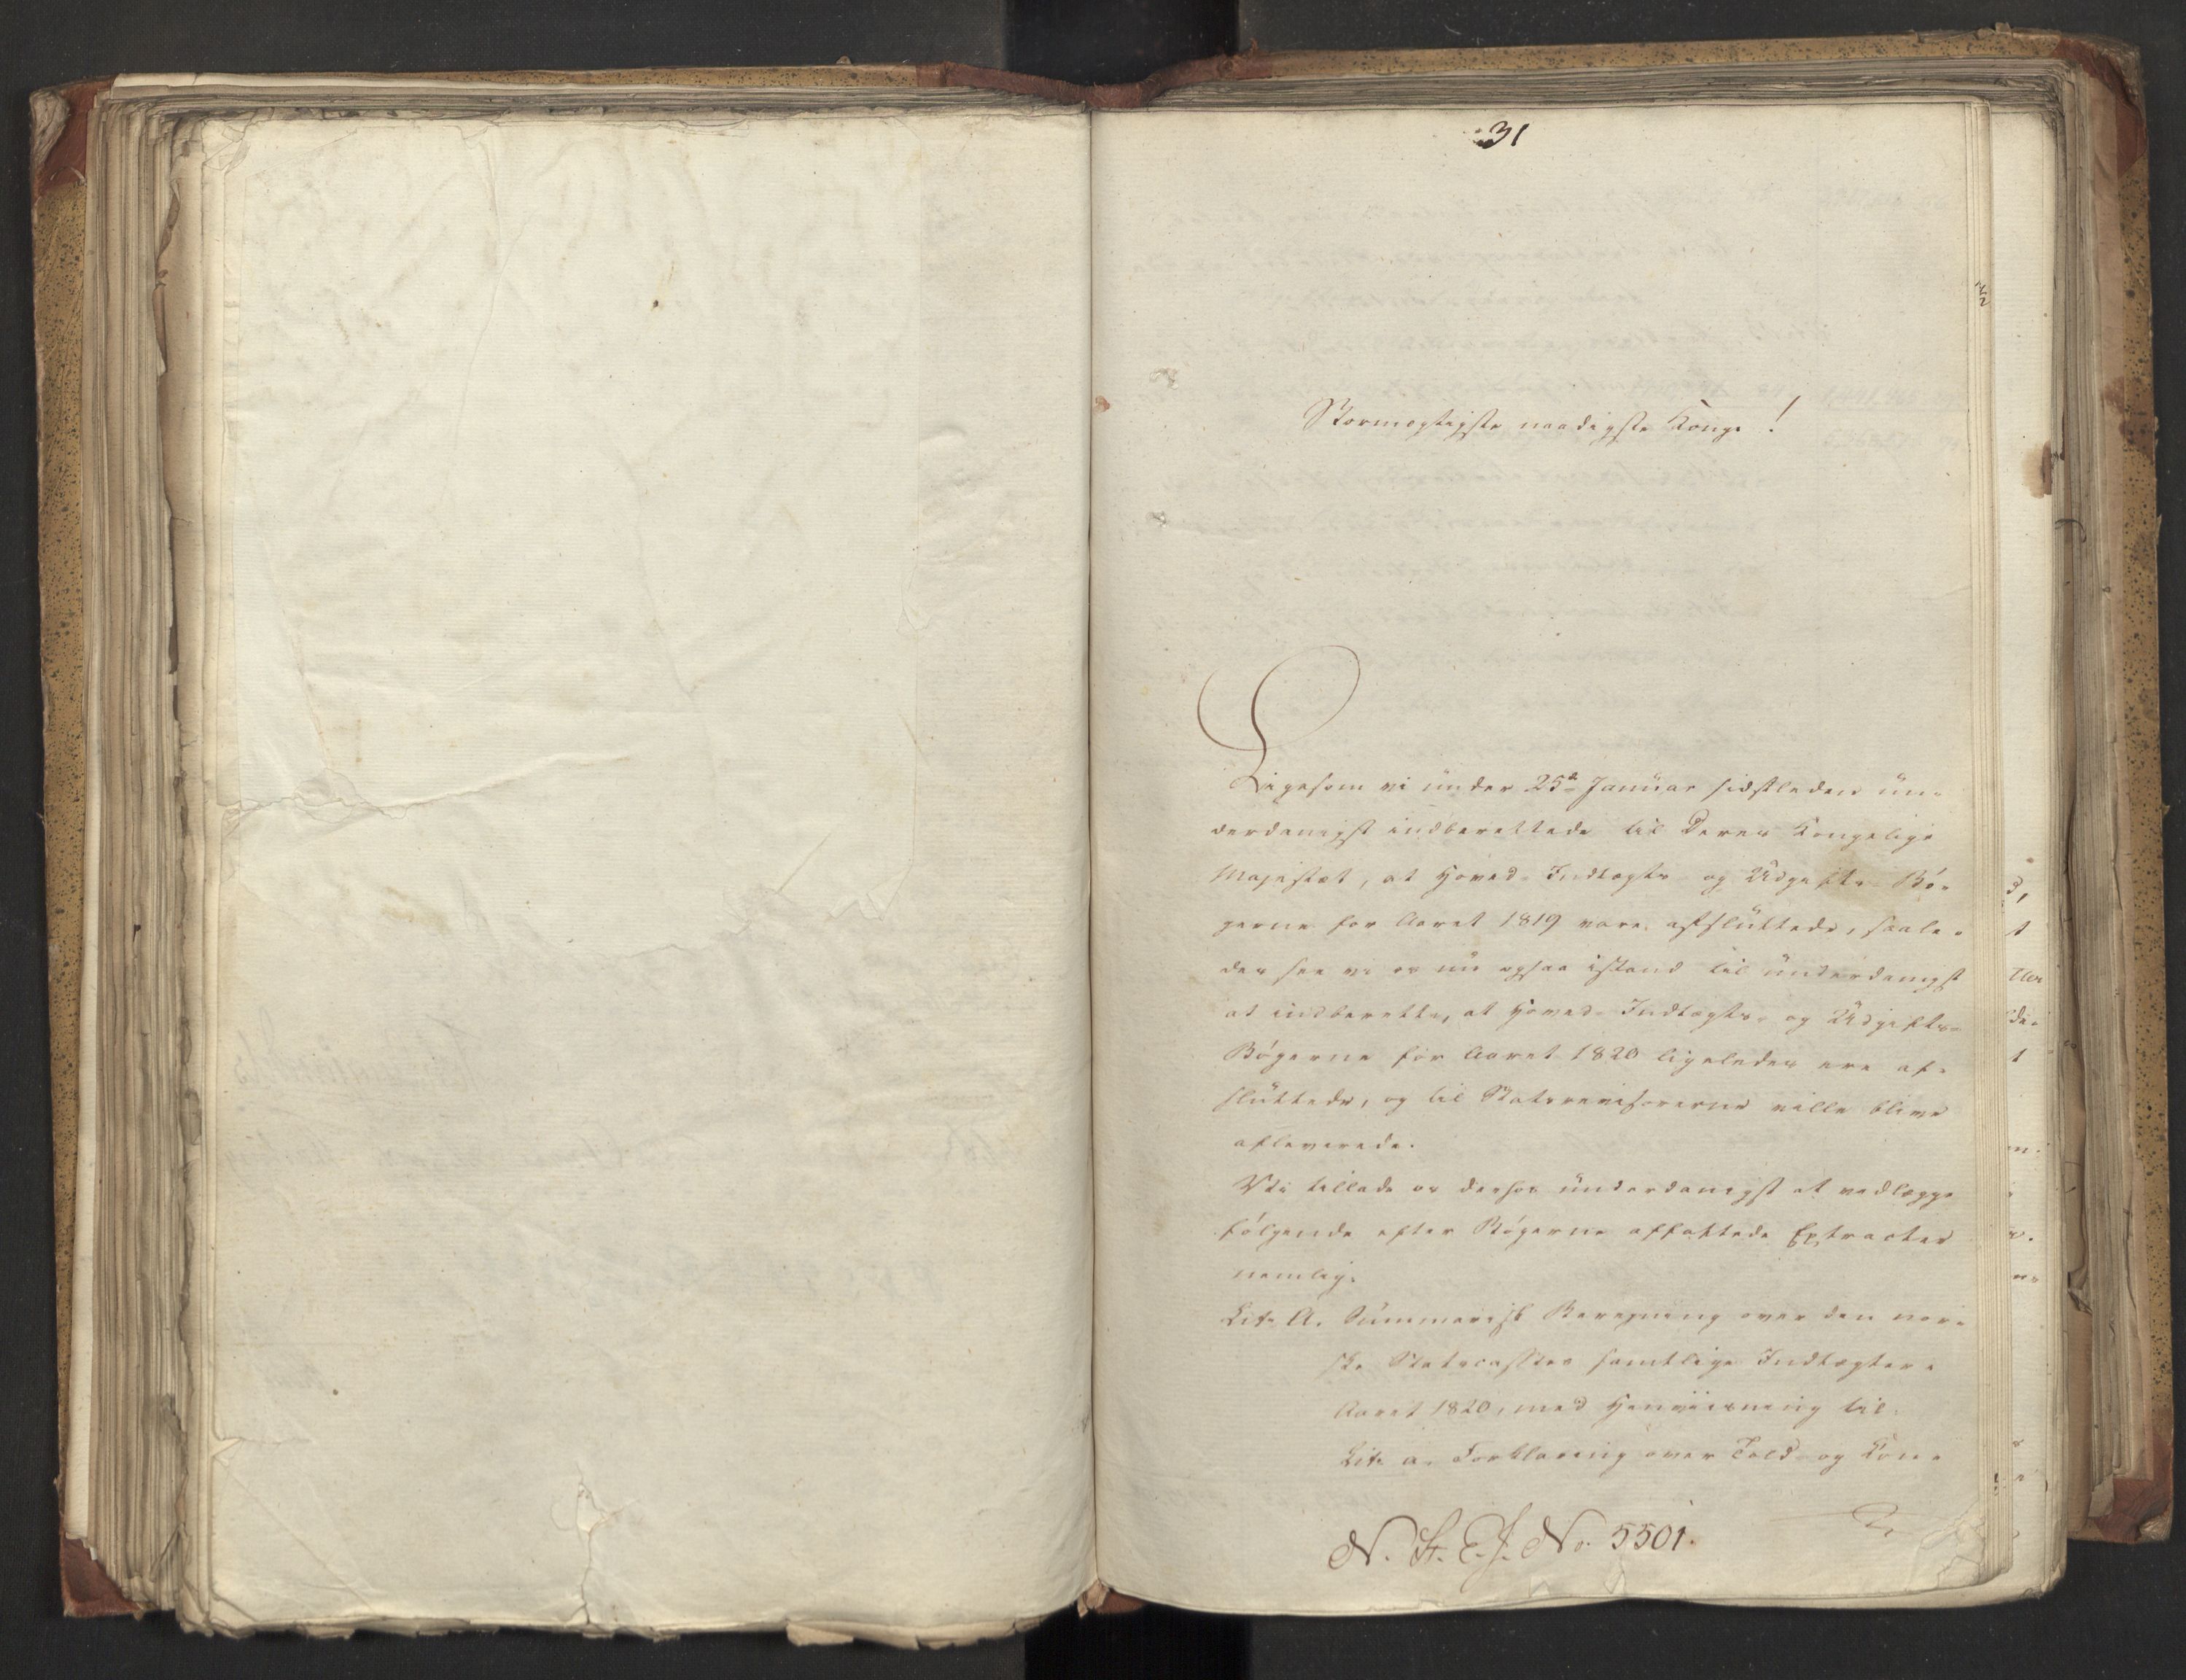 31
Stormægtigste naadigste Konge!
Ligesom vi under 25de Januar sidstleden un-
derdanigst indberettede til Deres Kongelige
Majestæt, at Hoved-Indtægts- og Udgifts-Bö-
gerne for Aaret 1819 vare afsluttede, saale-
des see vi os nu ogsaa istand til underdanigst
at indberette, at Hoved-Indtægts- og Udgifts-
Bögerne for Aaret 1820 ligeledes ere af-
sluttede, og til Statsrevisorerne ville blive
afleverede.
Vi tillade os derfor underdanigst at vedlægge
fölgende efter Bögerne affattede Extracter
nemlig:
Lit. A. Summarisk Beregning over den nor-
ske Statscasses samtlige Indtægter i
Aaret 1820, med Henviisning til
Lit. a. Forklaring over Told- og Con-
N. St. E. J. No. 5501.